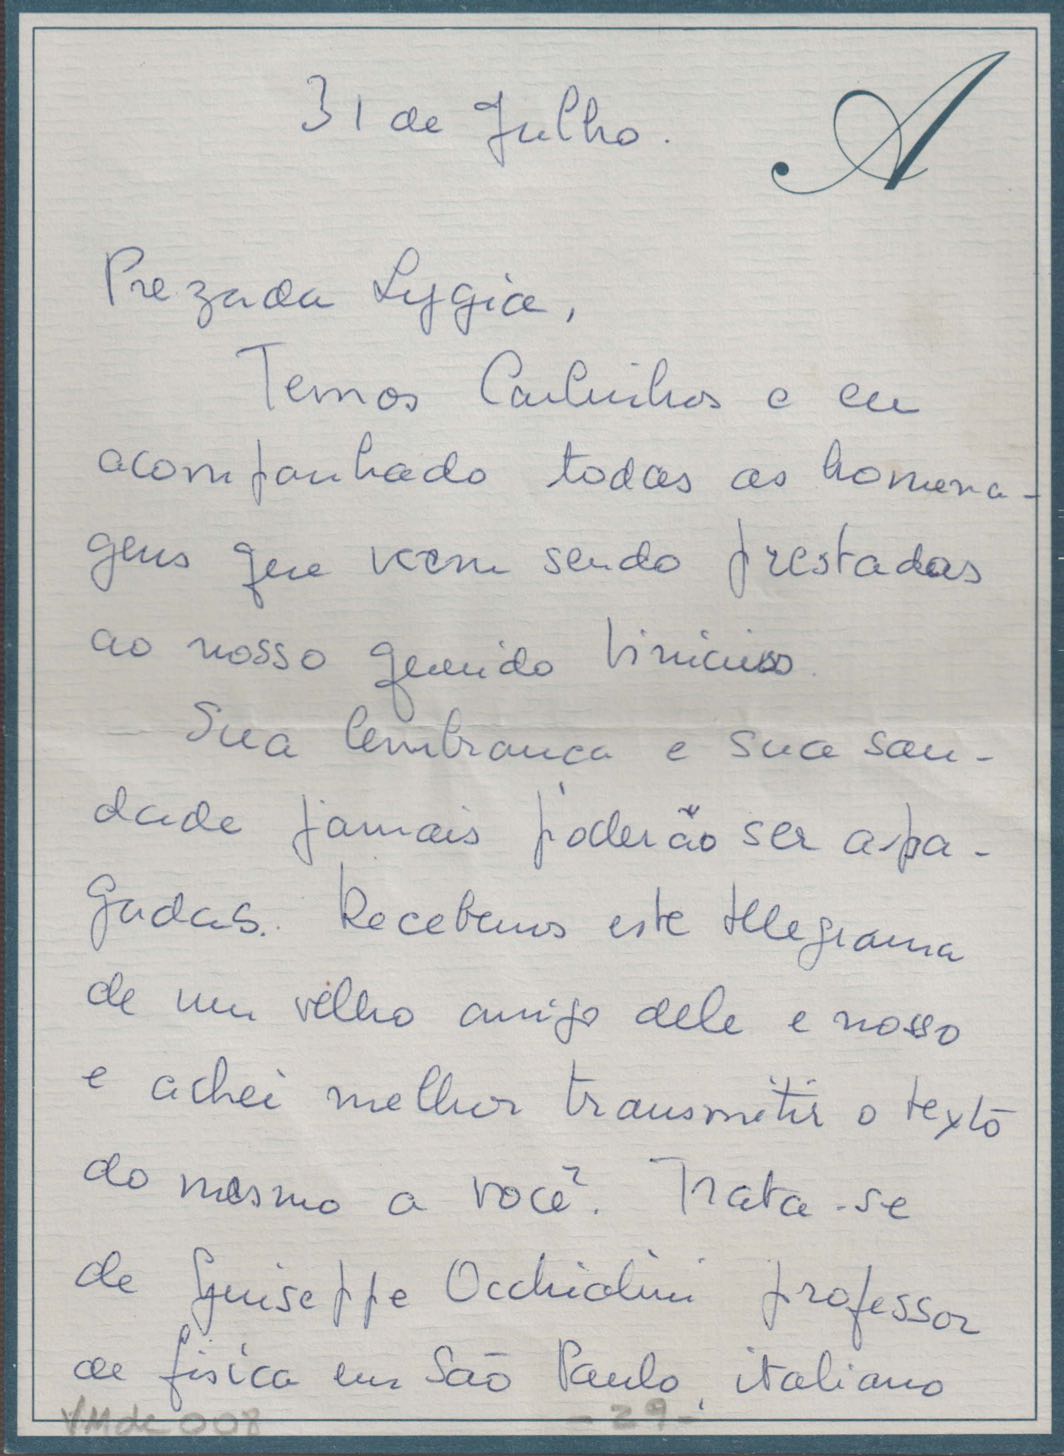 31 de Julho.
A
Prezada Lygia,
Temos Carlinhos e eu
acompanhado todas as homena-
gens que vem sendo prestadas
ao nosso querido Vinicius.
Sua lembrança e sua sau-
dade jamais poderão ser apa-
gadas. Recebemos este telegrama
de um velho amigo dele e nosso
e achei melhor transmitir o texto
do mesmo a você. Trata-se
de Guiseppe Occhialini professor
de física em São Paulo, italiano
VMdc 008 - 29 -